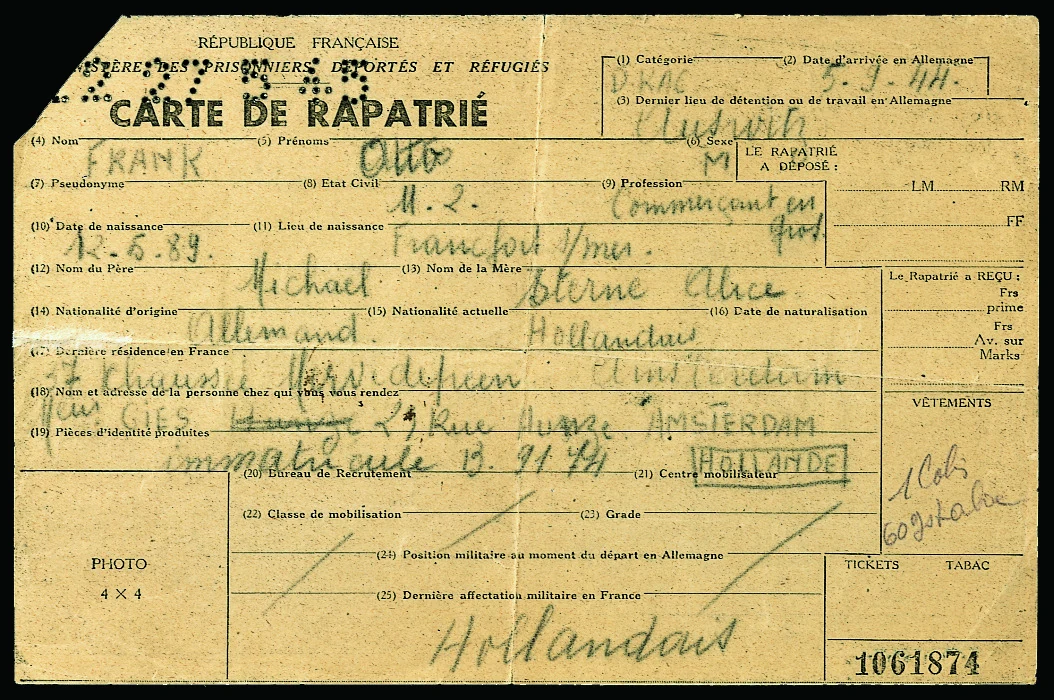 RÉPUBLIQUE FRANÇAISE
DES PRISONNIERS DÉPORTÉS ET RÉFUGIÉS
CARTE DE RAPATRIÉ
(1) Catégorie (2) Date d'arrivée en Allemagne
5-9-44.
(3) Dernier lieu de détention ou de travail en Allemagne
(4) Nom (5) Prénoms (6) Sexe
FRANK Otto M
LE RAPATRIÉ
A DÉPOSÉ :
LM RM
FF
(7) Pseudonyme (8) Etat Civil (9) Profession
M. 2. Commerçant en
gros.
(10) Date de naissance (11) Lieu de naissance
12-5-89. Francfort s/mer.
(12) Nom du Père (13) Nom de la Mère
Michael Sterne Alice
(14) Nationalité d'origine (15) Nationalité actuelle (16) Date de naturalisation
Allemand. Hollandais
(17) Dernière résidence en France
37 Chaussée Amsterdam
(18) Nom et adresse de la personne chez qui vous vous rendez
GIES 25 Rue Hunze. AMSTERDAM
HOLLANDE
(19) Pièces d'identité produites
immatricule B. 9174
(20) Bureau de Recrutement (21) Centre mobilisateur
(22) Classe de mobilisation (23) Grade
(24) Position militaire au moment du départ en Allemagne
(25) Dernière affectation militaire en France
Hollandais
PHOTO
4 × 4
Le Rapatrié a REÇU :
Frs
prime
Frs
Av. sur
Marks
VÊTEMENTS
1 Colis
60 gs tabac
TICKETS TABAC
1061874